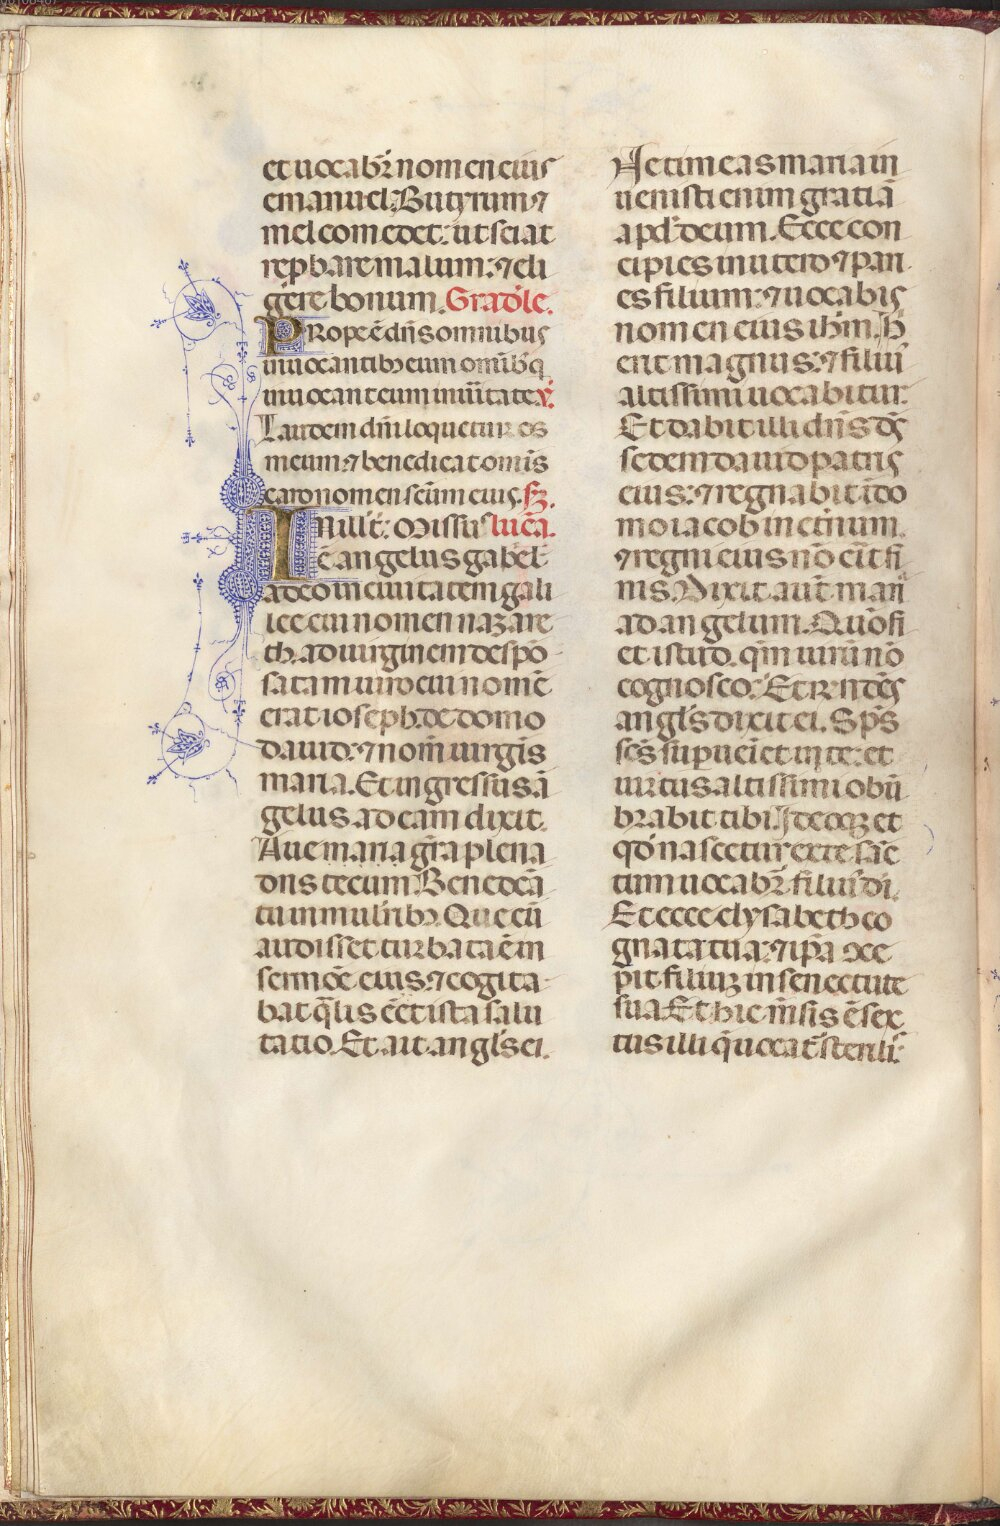 et uocabr̄ nomen eius
emanuel. Butyrum ⁊
mel comedet: ut sciat
rep̱bare malum: ⁊ eli
gere bonum. Grad̄le.
PROPE ē dn̄s omnibus
inuocantibꝫ eum omībꝫ q̄
inuocant eum in uītate ℣.
Laudem dn̄i loquetur os
meum ⁊ benedicat om̄is
caro nomen sc̄um eius. Sꝫ.
IN illt̄: Missus luc̄a.
ē angelus gabēl
a deo in ciuitatem gali
lee cui nomen nazare
th. ad uirginem despō
satam uiro cui nom̄e
erat ioseph. de domo
dauid: ⁊ nom̄ uirgīs
maria. Et ingressus ā
gelus ad eam dixit.
Aue maria gr̄a plena
dn̄s tecum Benedc̄a
tu in muliribꝫ. Que cū
audisset turbata ē in
sermōe eius: ⁊ cogita
bat q̄lis eēt ista salu
tatio. Et ait angl̄s ei.
Ne timeas maria in
uenisti enim gratiā
apd̄ deum. Ecce con
cipies in utero ⁊ pari
es filium: ⁊ uocabis
nomen eius ih̄m. H̄
erit magnus: ⁊ filiu᷒
altissimi uocabitur.
Et dabit illi dn̄s ds̄
sedem dauid patris
eius: ⁊ regnabit ī do
mo iacob in et̄num.
⁊ regni eius nō eīt fi
nis. Dixit aut̄ mari᷒
ad angelum. Quō fi
et istud. qm̄ uirū nō
cognosco. Et rn̄dēs
angl̄s dixit ei. Sp̄s
sc̄s sup ueīet in te: et
uirtus altissimi obū
brabit tibi. Ideoqꝫ et
qd̄ nascetur ex te sāc
tum uocabr̄ filius di᷒.
Et ecce elysabeth co
gnata tua: ⁊ ip̄a ↄce
pit filiuꝫ in senectute
sua. Et hic m̄sis ē sex
tus illi q̄ uocat᷒ sterili᷒: